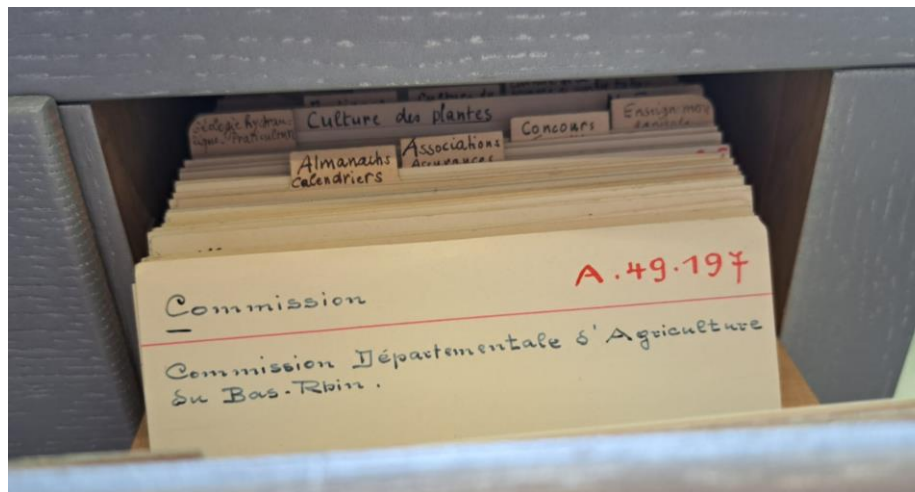 Culture des plantes
Concours
Associations
Assurances
Almanachs
Calendriers
A.49.197
Commission
Commission Départementale d'Agriculture
du Bas-Rhin.